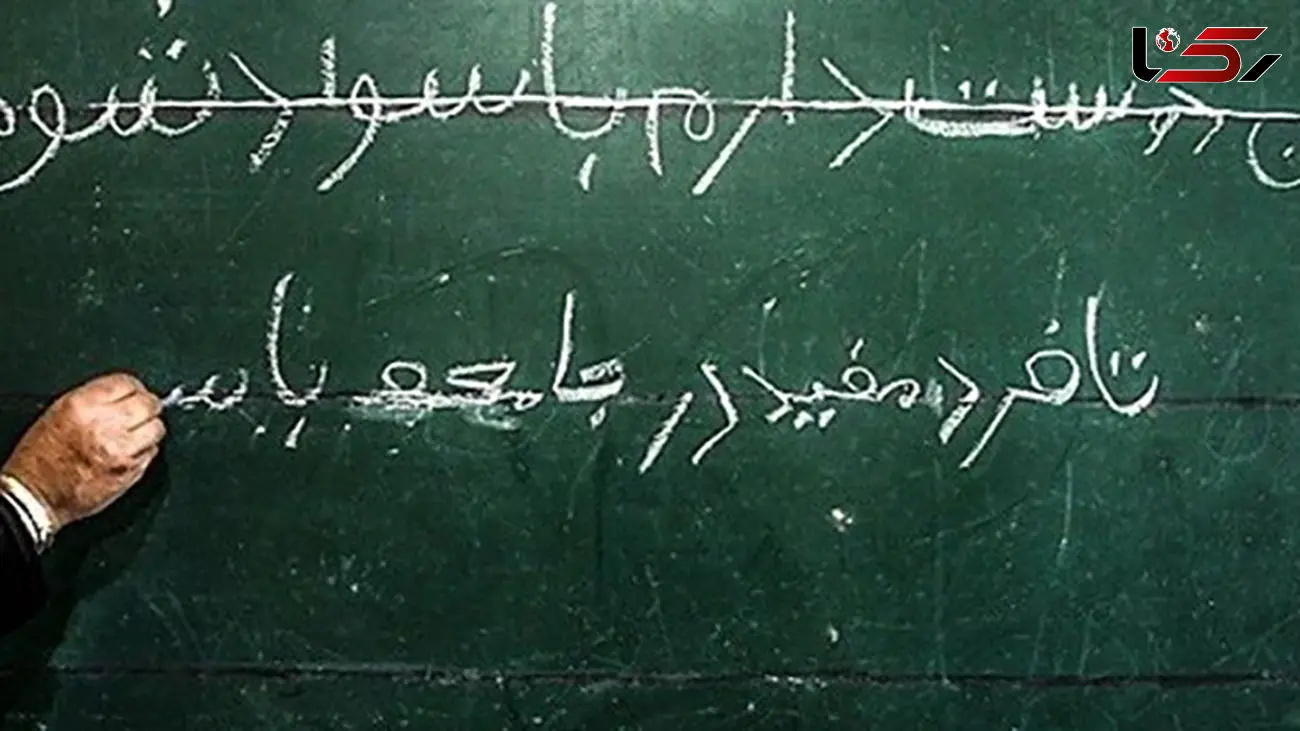 رکنا
ن دوست دارم باسواد شوم
تا فرد مفید در جامعه با باس